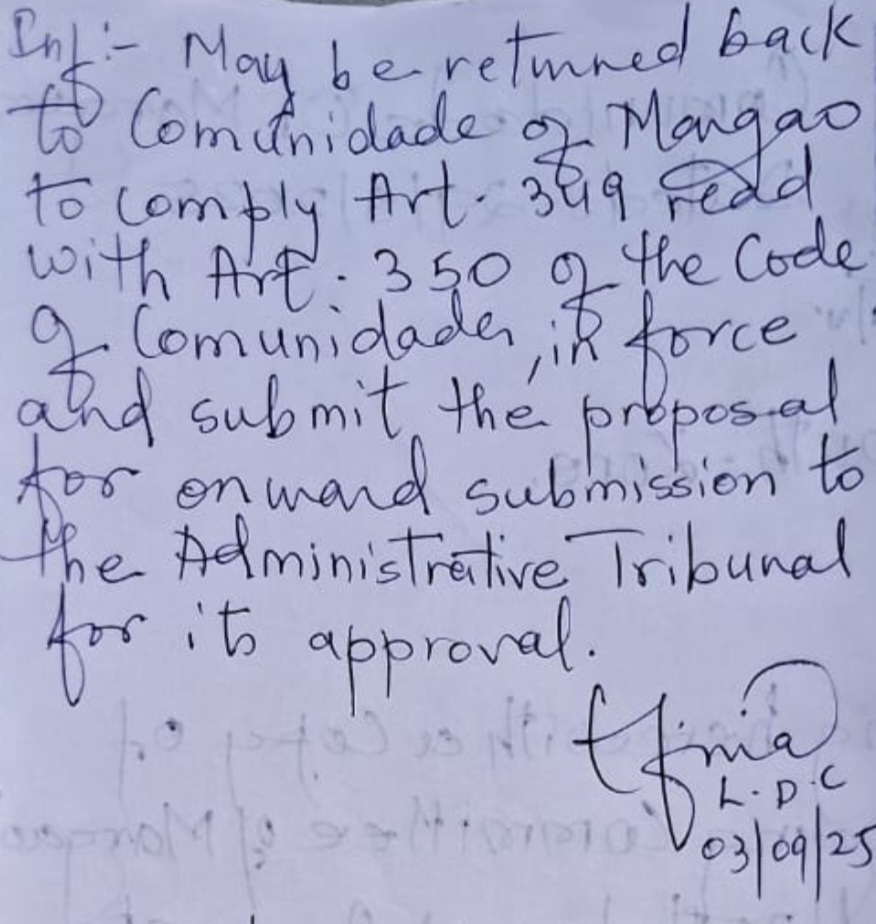 Inf:- May be returned back
to Comunidade of Mangao
to comply Art. 349 read
with Art. 350 of the Code
of Comunidades, in force
and submit the proposal
for onward submission to
the Administrative Tribunal
for its approval.
L.D.C
03/09/25